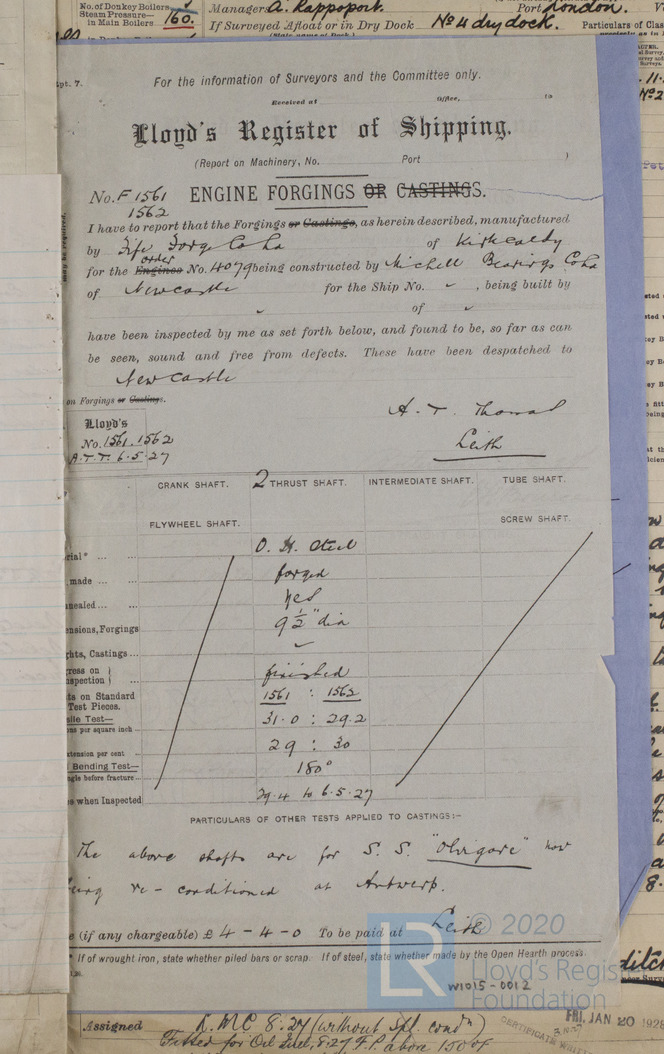 No. of Donkey Boilers
Steam Pressure—
in Main Boilers 160.
Managers A. Rappoport.
Port London.
If Surveyed Afloat or in Dry Dock No 4 dry dock.
(State name of Dock.)
Particulars of Clas
pt. 7.
For the information of Surveyors and the Committee only.
Received at Office, 19
Lloyd's Register of Shipping.
(Report on Machinery, No. Port )
No. F 1561
1562
ENGINE FORGINGS OR CASTINGS.
I have to report that the Forgings or Castings, as herein described, manufactured
by Fife Forge Co Ld of Kirkcaldy
order
for the Engines No. 4079 being constructed by Michell Bearings Co Ld
of Newcastle for the Ship No. , being built by
of
have been inspected by me as set forth below, and found to be, so far as can
be seen, sound and free from defects. These have been despatched to
Newcastle
on Forgings or Castings.
A. T. Thomas
Leith
Lloyd's
No. 1561.1562
A.T.T. 6.5.27
CRANK SHAFT. 2 THRUST SHAFT. INTERMEDIATE SHAFT. TUBE SHAFT.
FLYWHEEL SHAFT. SCREW SHAFT.
rial* O. H. Steel
made forged
nealed yes
ensions, Forgings 9 1/2" dia
ghts, Castings
ress on
spection finished
ts on Standard
Test Pieces. 1561 : 1562
ile Test—
ns per square inch 31.0 : 29.2
xtension per cent 29 : 30
Bending Test—
ngle before fracture 180°
s when Inspected 29.4 to 6.5.27
PARTICULARS OF OTHER TESTS APPLIED TO CASTINGS:-
The above shafts are for S. S. now
eing re-conditioned at Antwerp.
e (if any chargeable) £ 4 - 4 - 0 To be paid at Leith
* If of wrought iron, state whether piled bars or scrap. If of steel, state whether made by the Open Hearth process.
© 2020
LR
Lloyd's Regist
Foundation
W1015-0012
FRI. JAN 20 1928
CERTIFICATE WRITTEN
Assigned L.MC 8.27 (without Spl. condn)
Fitted for Oil fuel, 8.27 F.P. above 150°F